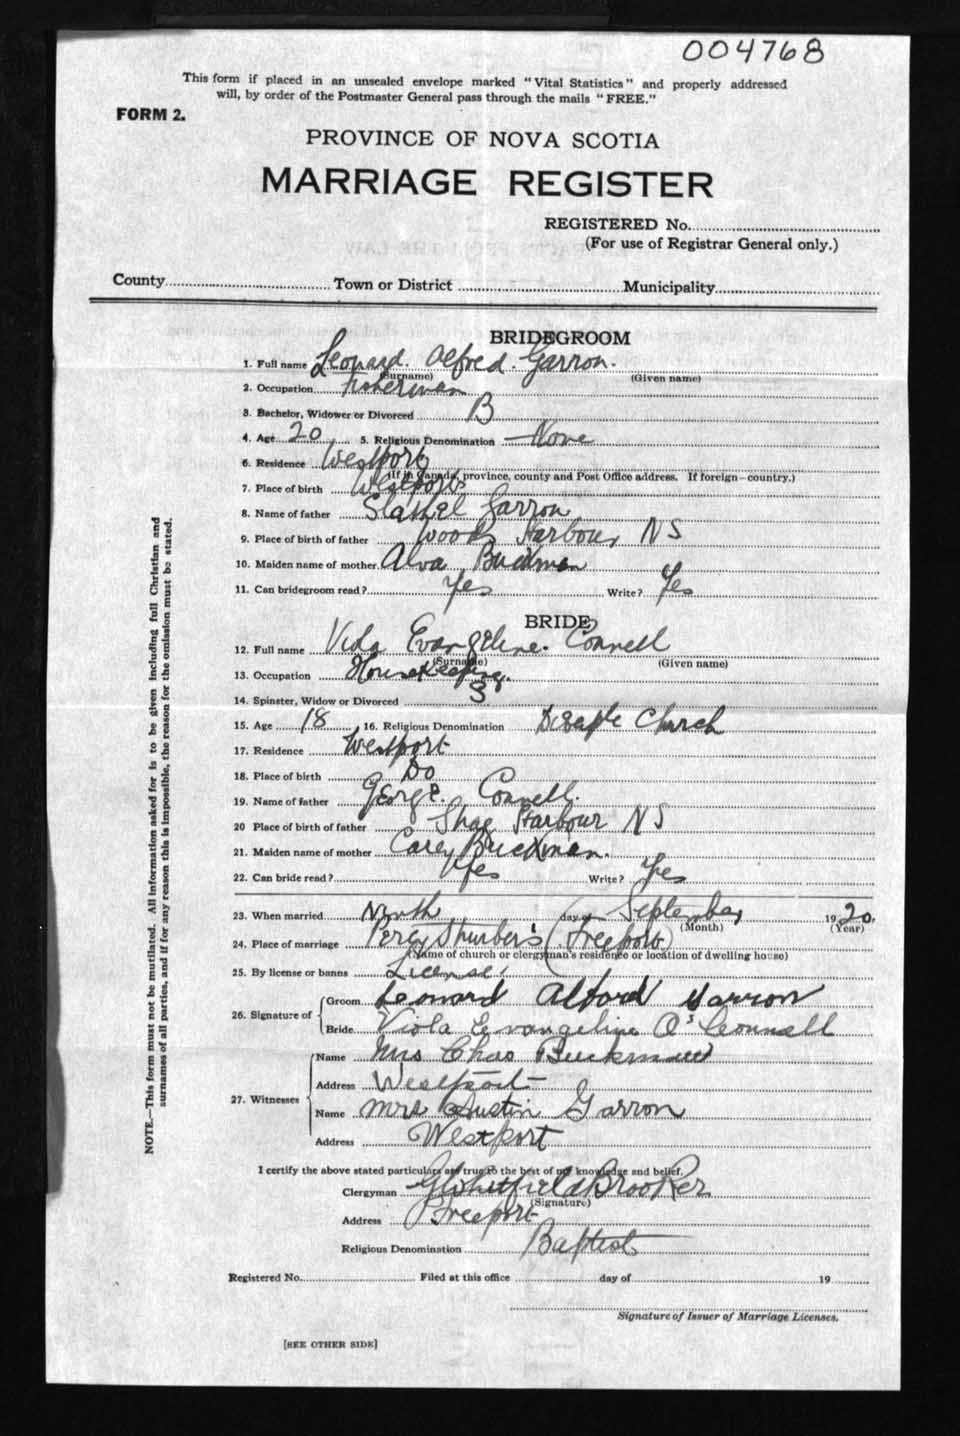 004768
This form if placed in an unsealed envelope marked "Vital Statistics" and properly addressed
will, by order of the Postmaster General pass through the mails "FREE."
FORM 2.
PROVINCE OF NOVA SCOTIA
MARRIAGE REGISTER
REGISTERED No.
(For use of Registrar General only.)
County Town or District Municipality
BRIDEGROOM
1. Full name Leonard. Alfred. Garron.
(Surname) (Given name)
2. Occupation Fisherman
3. Bachelor, Widower or Divorced B
4. Age 20 5. Religious Denomination None
6. Residence Westport
(If in Canada, province, county and Post Office address. If foreign—country.)
7. Place of birth Westport
8. Name of father Garron
9. Place of birth of father Woods Harbour NS
10. Maiden name of mother Alva
11. Can bridegroom read? Yes Write? Yes
BRIDE
12. Full name Viola Evangeline. Connell
(Surname) (Given name)
13. Occupation Housekeeping.
14. Spinster, Widow or Divorced S
15. Age 18 16. Religious Denomination Church
17. Residence Westport
18. Place of birth Do
19. Name of father George. Connell.
20 Place of birth of father Shag Harbour NS
21. Maiden name of mother Carey
22. Can bride read? Yes Write? Yes
23. When married Ninth day of September 1920.
(Month) (Year)
24. Place of marriage Percy Thurber's (Freeport)
(Name of church or clergyman's residence or location of dwelling house)
25. By license or banns License.
26. Signature of Groom Leonard Alford Garron
Bride Viola Evangeline O'Connell
27. Witnesses Name Mrs Chas Buckman
Address Westport
Name Mrs Austin Garron
Address Westport
I certify the above stated particulars are true to the best of my knowledge and belief.
Clergyman Brooker
(Signature)
Address Freeport
Religious Denomination Baptist
Registered No. Filed at this office day of 19
Signature of Issuer of Marriage Licenses.
[SEE OTHER SIDE]
NOTE.—This form must not be mutilated. All information asked for is to be given including full Christian and
surnames of all parties, and if for any reason this is impossible, the reason for the omission must be stated.